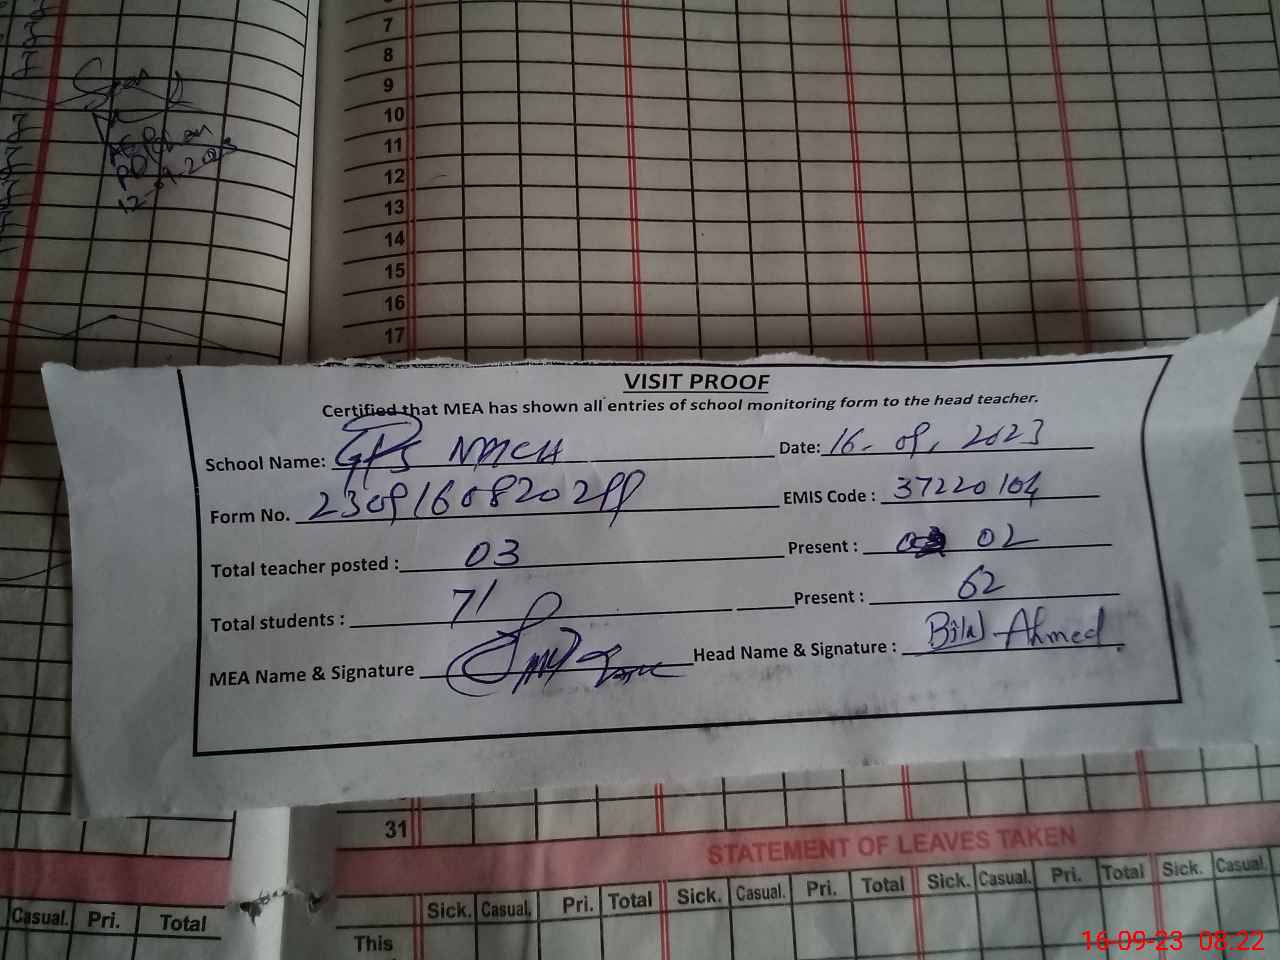 7
8
9
10
11
12
13
14
15
16
17
12-09-2023
VISIT PROOF
Certified that MEA has shown all entries of school monitoring form to the head teacher.
School Name: GPS NMCH Date: 16-09, 2023
Form No. EMIS Code : 37220104
Total teacher posted : 03 Present : 02
Total students : 71 Present : 62
MEA Name & Signature Head Name & Signature : Bilal Ahmed
31
STATEMENT OF LEAVES TAKEN
Casual. Pri. Total Sick. Casual. Pri. Total Sick. Casual. Pri. Total Sick. Casual. Pri. Total Sick. Casual.
This
16-09-23 08:22